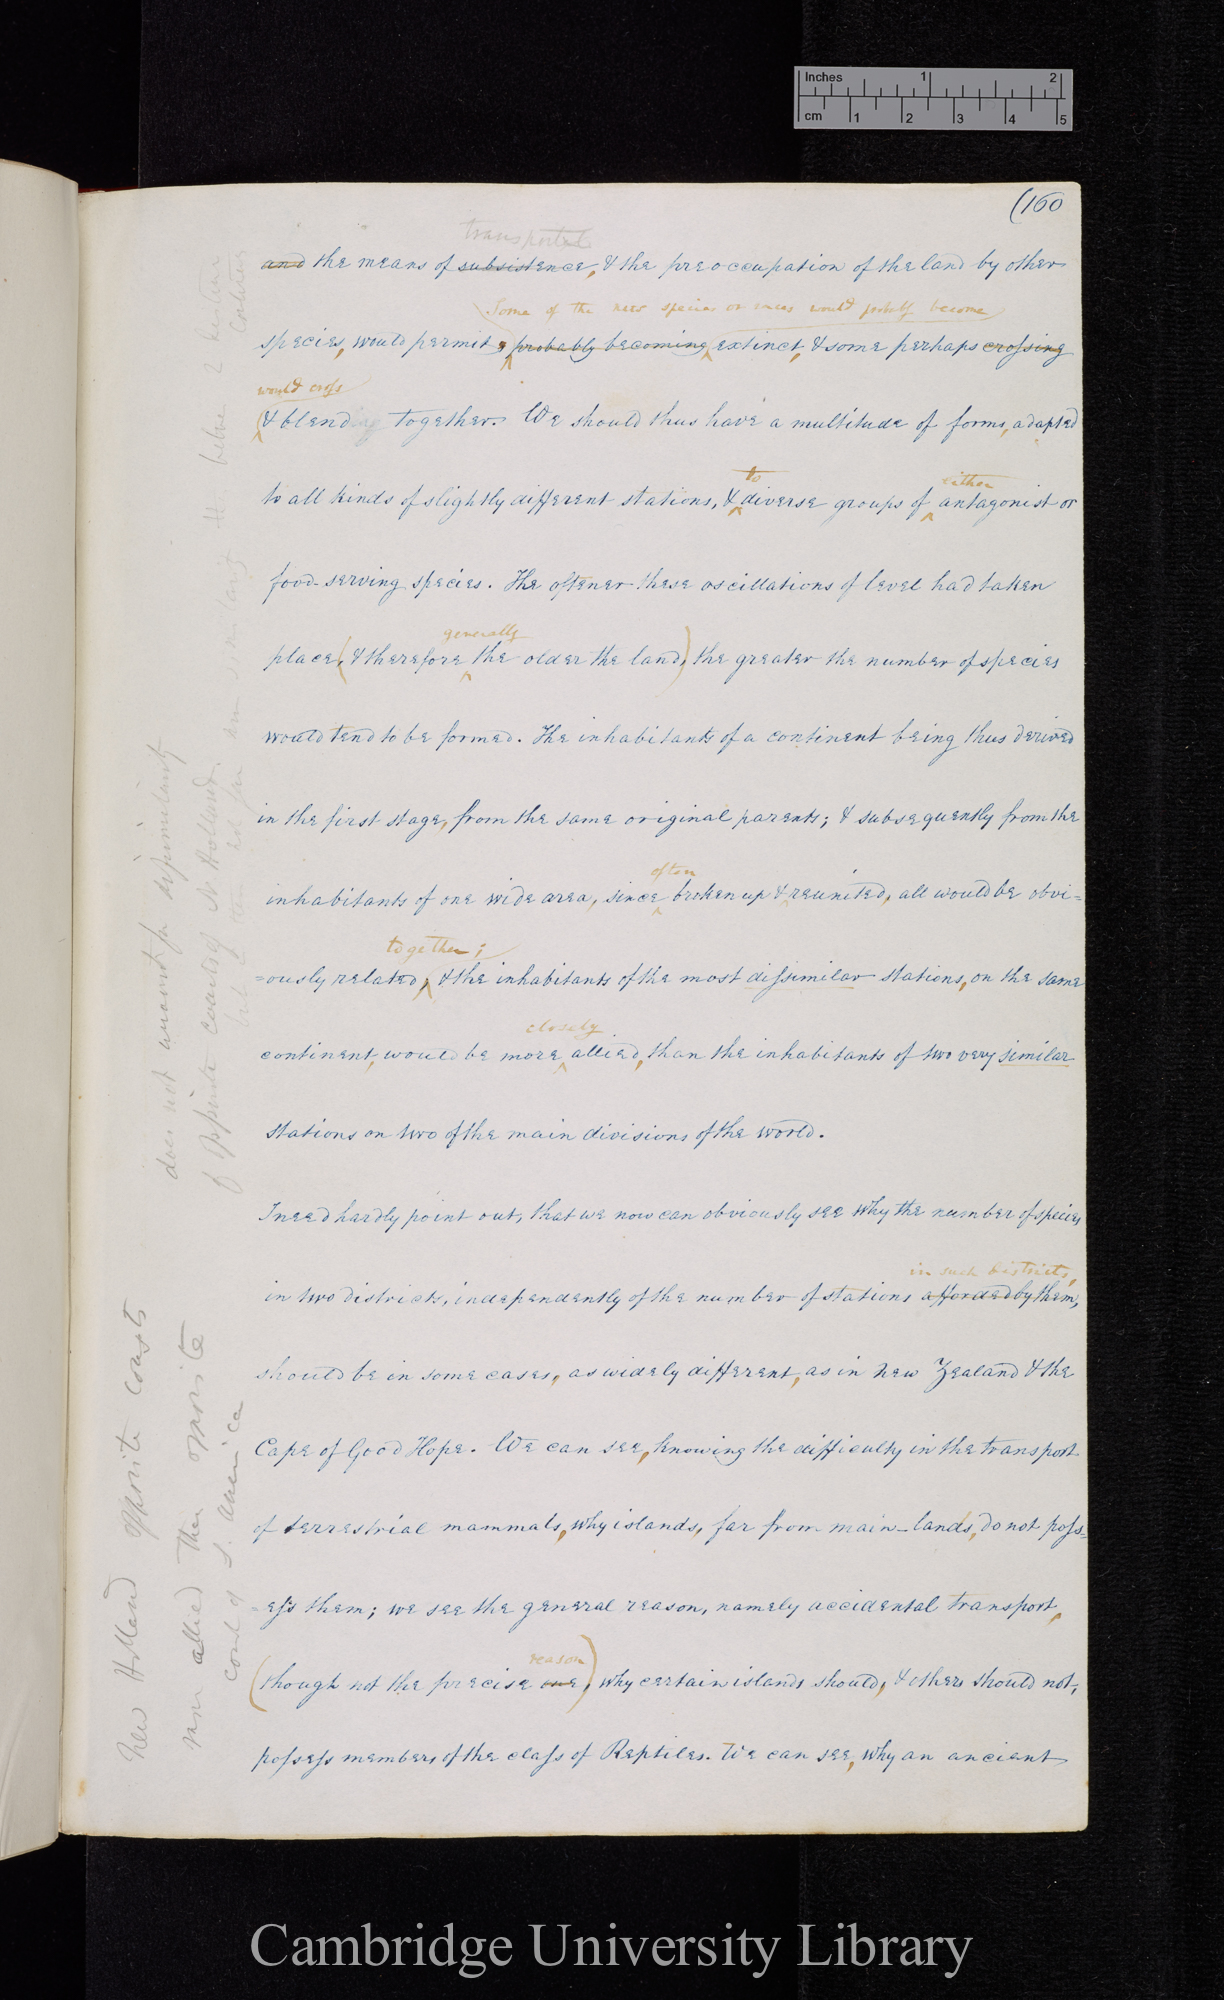 Inches 1 2
cm 1 2 3 4 5
(160
transported
and the means of subsistence, & the preoccupation of the land by other
Some of the new species or races would probably become
species, would permit, probably becoming extinct, & some perhaps crossing
would cross
& blending together. We should thus have a multitude of forms, adapted
to either
to all kinds of slightly different stations, & diverse groups of antagonist or
food-serving species. The oftener these oscillations of level had taken
generally
place, (& therefore the older the land) the greater the number of species
would tend to be formed. The inhabitants of a continent being thus derived
in the first stage, from the same original parents; & subsequently from the
often
inhabitants of one wide area, since broken up & reunited, all would be obvi=
together;
=ously related, & the inhabitants of the most dissimilar stations, on the same
closely
continent, would be more allied, than the inhabitants of two very similar
stations on two of the main divisions of the world.
I need hardly point out, that we now can obviously see why the number of species
in such districts,
in two districts, independently of the number of stations afforded by them,
should be in some cases, as widely different, as in New Zealand & the
Cape of Good Hope. We can see, knowing the difficulty in the transport
of terrestrial mammals, why islands, far from main-lands, do not poss=
=ess them; we see the general reason, namely accidental transport,
reason
(though not the precise one) why certain islands should, & others should not,
possess members of the class of Reptiles. We can see, why an ancient
does not account for dissimilarity
of opposite coasts of N. Holland.
New Holland opposite coasts
more allied than opposite
coast of S. America
Cambridge University Library